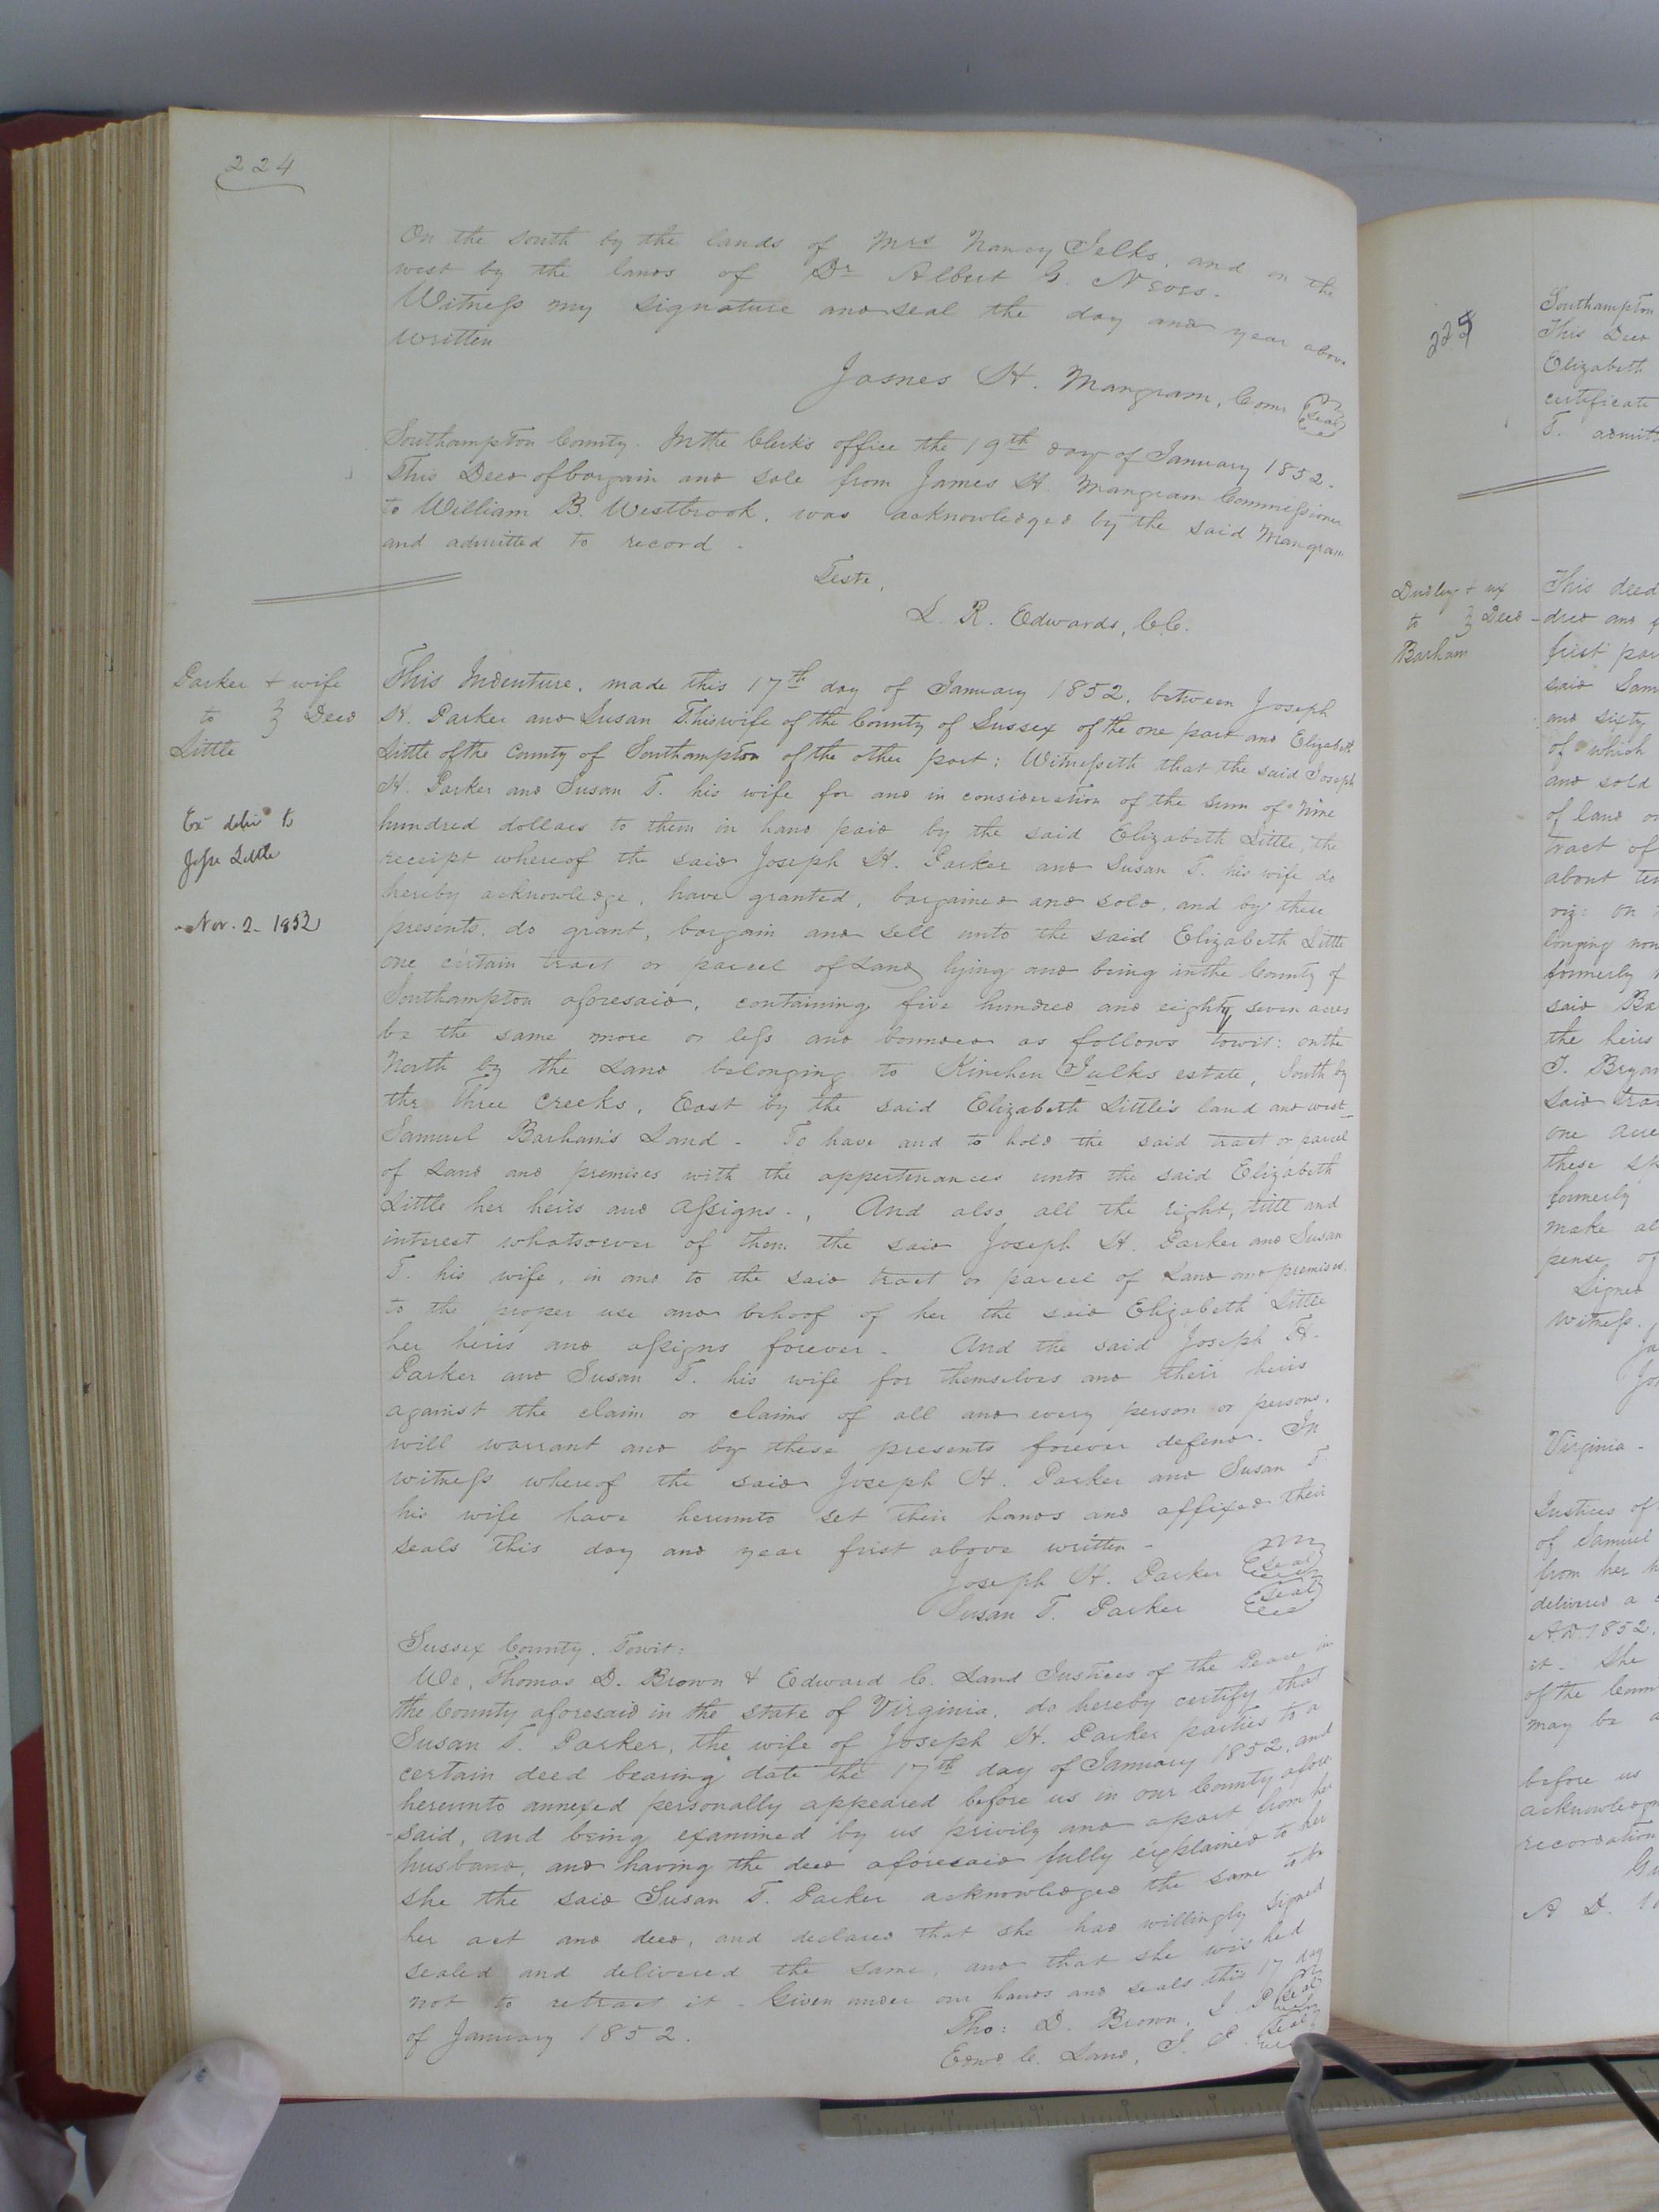 224
On the south by the lands of Mrs Nancy Jelks, and on the
west by the lands of Dr Albert G.
Witness my signature and seal the day and year above
written
James H. Mangram, Comr Seal
Southampton County. In the Clerk's office the 19th day of January 1852.
This Deed of bargain and sale from James H. Mangram Commissioner
to William B. Westbrook, was acknowledged by the said Mangram
and admitted to record -
Teste,
L. R. Edwards, C.C.
Parker + wife
to } Deed
Little
Ex delid to
Jesse Little
Nov. 2 - 1853
This Indenture, made this 17th day of January 1852, between Joseph
H. Parker and Susan T. his wife of the County of Sussex of the one part and Elizabeth
Little of the County of Southampton of the other part: Witnesseth that the said Joseph
H. Parker and Susan T. his wife for and in consideration of the sum of Nine
hundred dollars to them in hand paid by the said Elizabeth Little, the
receipt whereof the said Joseph H. Parker and Susan T. his wife do
hereby acknowledge, have granted, bargained and sold, and by these
presents, do grant, bargain and sell unto the said Elizabeth Little
one certain tract or parcel of Land lying and being in the County of
Southampton aforesaid, containing five hundred and eighty seven acres
be the same more or less and bounded as follows towit: on the
North by the Land belonging to Kinchen Julks estate, South by
the Three Creeks, East by the said Elizabeth Little's land and west
Samuel Barham's Land - To have and to hold the said tract or parcel
of Land and premises with the appertinances unto the said Elizabeth
Little her heirs and assigns -, And also all the right, title and
interest whatsoever of them the said Joseph H. Parker and Susan
T. his wife, in and to the said tract or parcel of Land and premises.
to the proper use and behoof of her the said Elizabeth Little
her heirs and assigns forever - And the said Joseph H.
Parker and Susan T. his wife for themselves and their heirs
against the claim or claims of all and every person or persons,
will warrant and by these presents forever defend. In
witness whereof the said Joseph H. Parker and Susan T.
his wife have hereunto set their hands and affixed their
seals this day and year first above written -
Joseph H. Parker Seal
Susan T. Parker Seal
Sussex County. Towit:
We, Thomas D. Brown & Edward C. Land Justices of the Peace in
the County aforesaid in the state of Virginia, do hereby certify that
Susan T. Parker, the wife of Joseph H. Parker parties to a
certain deed bearing date the 17th day of January 1852, and
hereunto annexed personally appeared before us in our County afore
-said, and being examined by us privily and apart from her
husband, and having the deed aforesaid fully explained to her
she the said Susan T. Parker acknowledged the same to be
her act and deed, and declared that she had willingly signed
sealed and delivered the same, and that she wished
not to retract it - Given under our hands and seals this 17 day
of January 1852.
Tho: D. Brown, J. P. Seal
Edwd C. Land, J. P. Seal
225
Southampton
This Deed
Elizabeth
certificate
T. admitt
Dudley + ux
to } Deed
Barham
This deed
dred and
first par
said Sam
and sixty
of which
and sold
of land
tract of
about
viz: on
longing now
formerly
said Ba
the heirs
J. Bryan
said trac
one acre
these
formerly
make al
pense of
Signed
Witness.
Virginia -
Justices of
of Samuel
from her
delivered a
A.D. 1852.
it - She
of the
may be
before us
acknowledgm
recordation
A D. 1